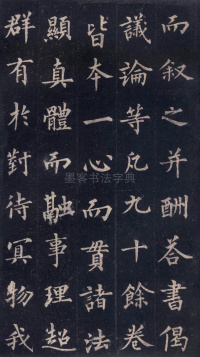 而叙之并酬荅書偈
議論等凡九十餘卷
皆本一心而貫諸法
顯真體而融事理超
群有於對待冥物我
墨客书法字典